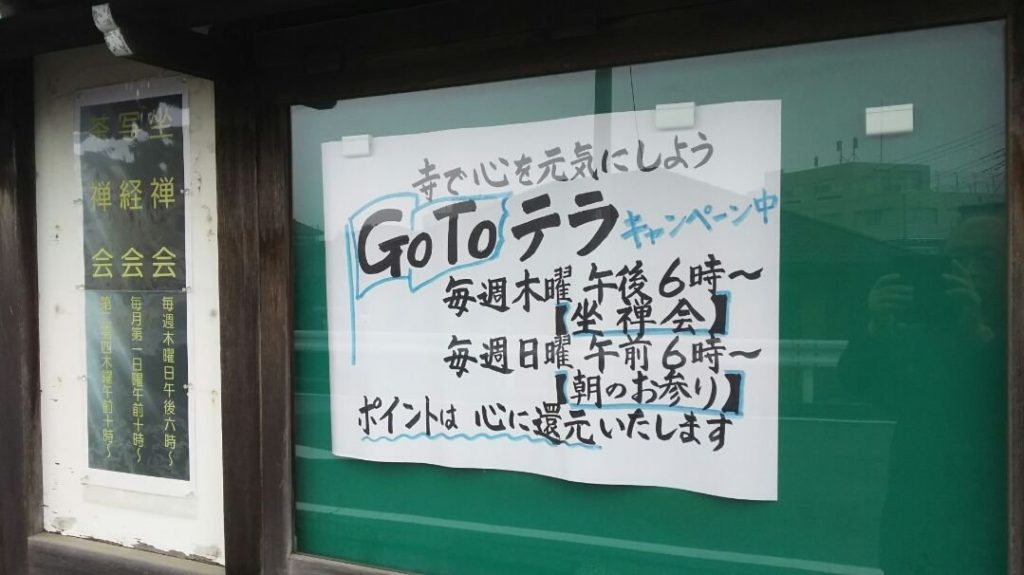 寺で心を元気にしよう
GoToテラ キャンペーン中
毎週木曜 午後6時〜
【坐禅会】
毎週日曜 午前6時〜
【朝のお参り】
ポイントは 心に還元いたします
坐禅会 毎週木曜日午後六時〜
写経会 毎月第一日曜午前十時〜
茶禅会 第二第四木曜午前十時〜